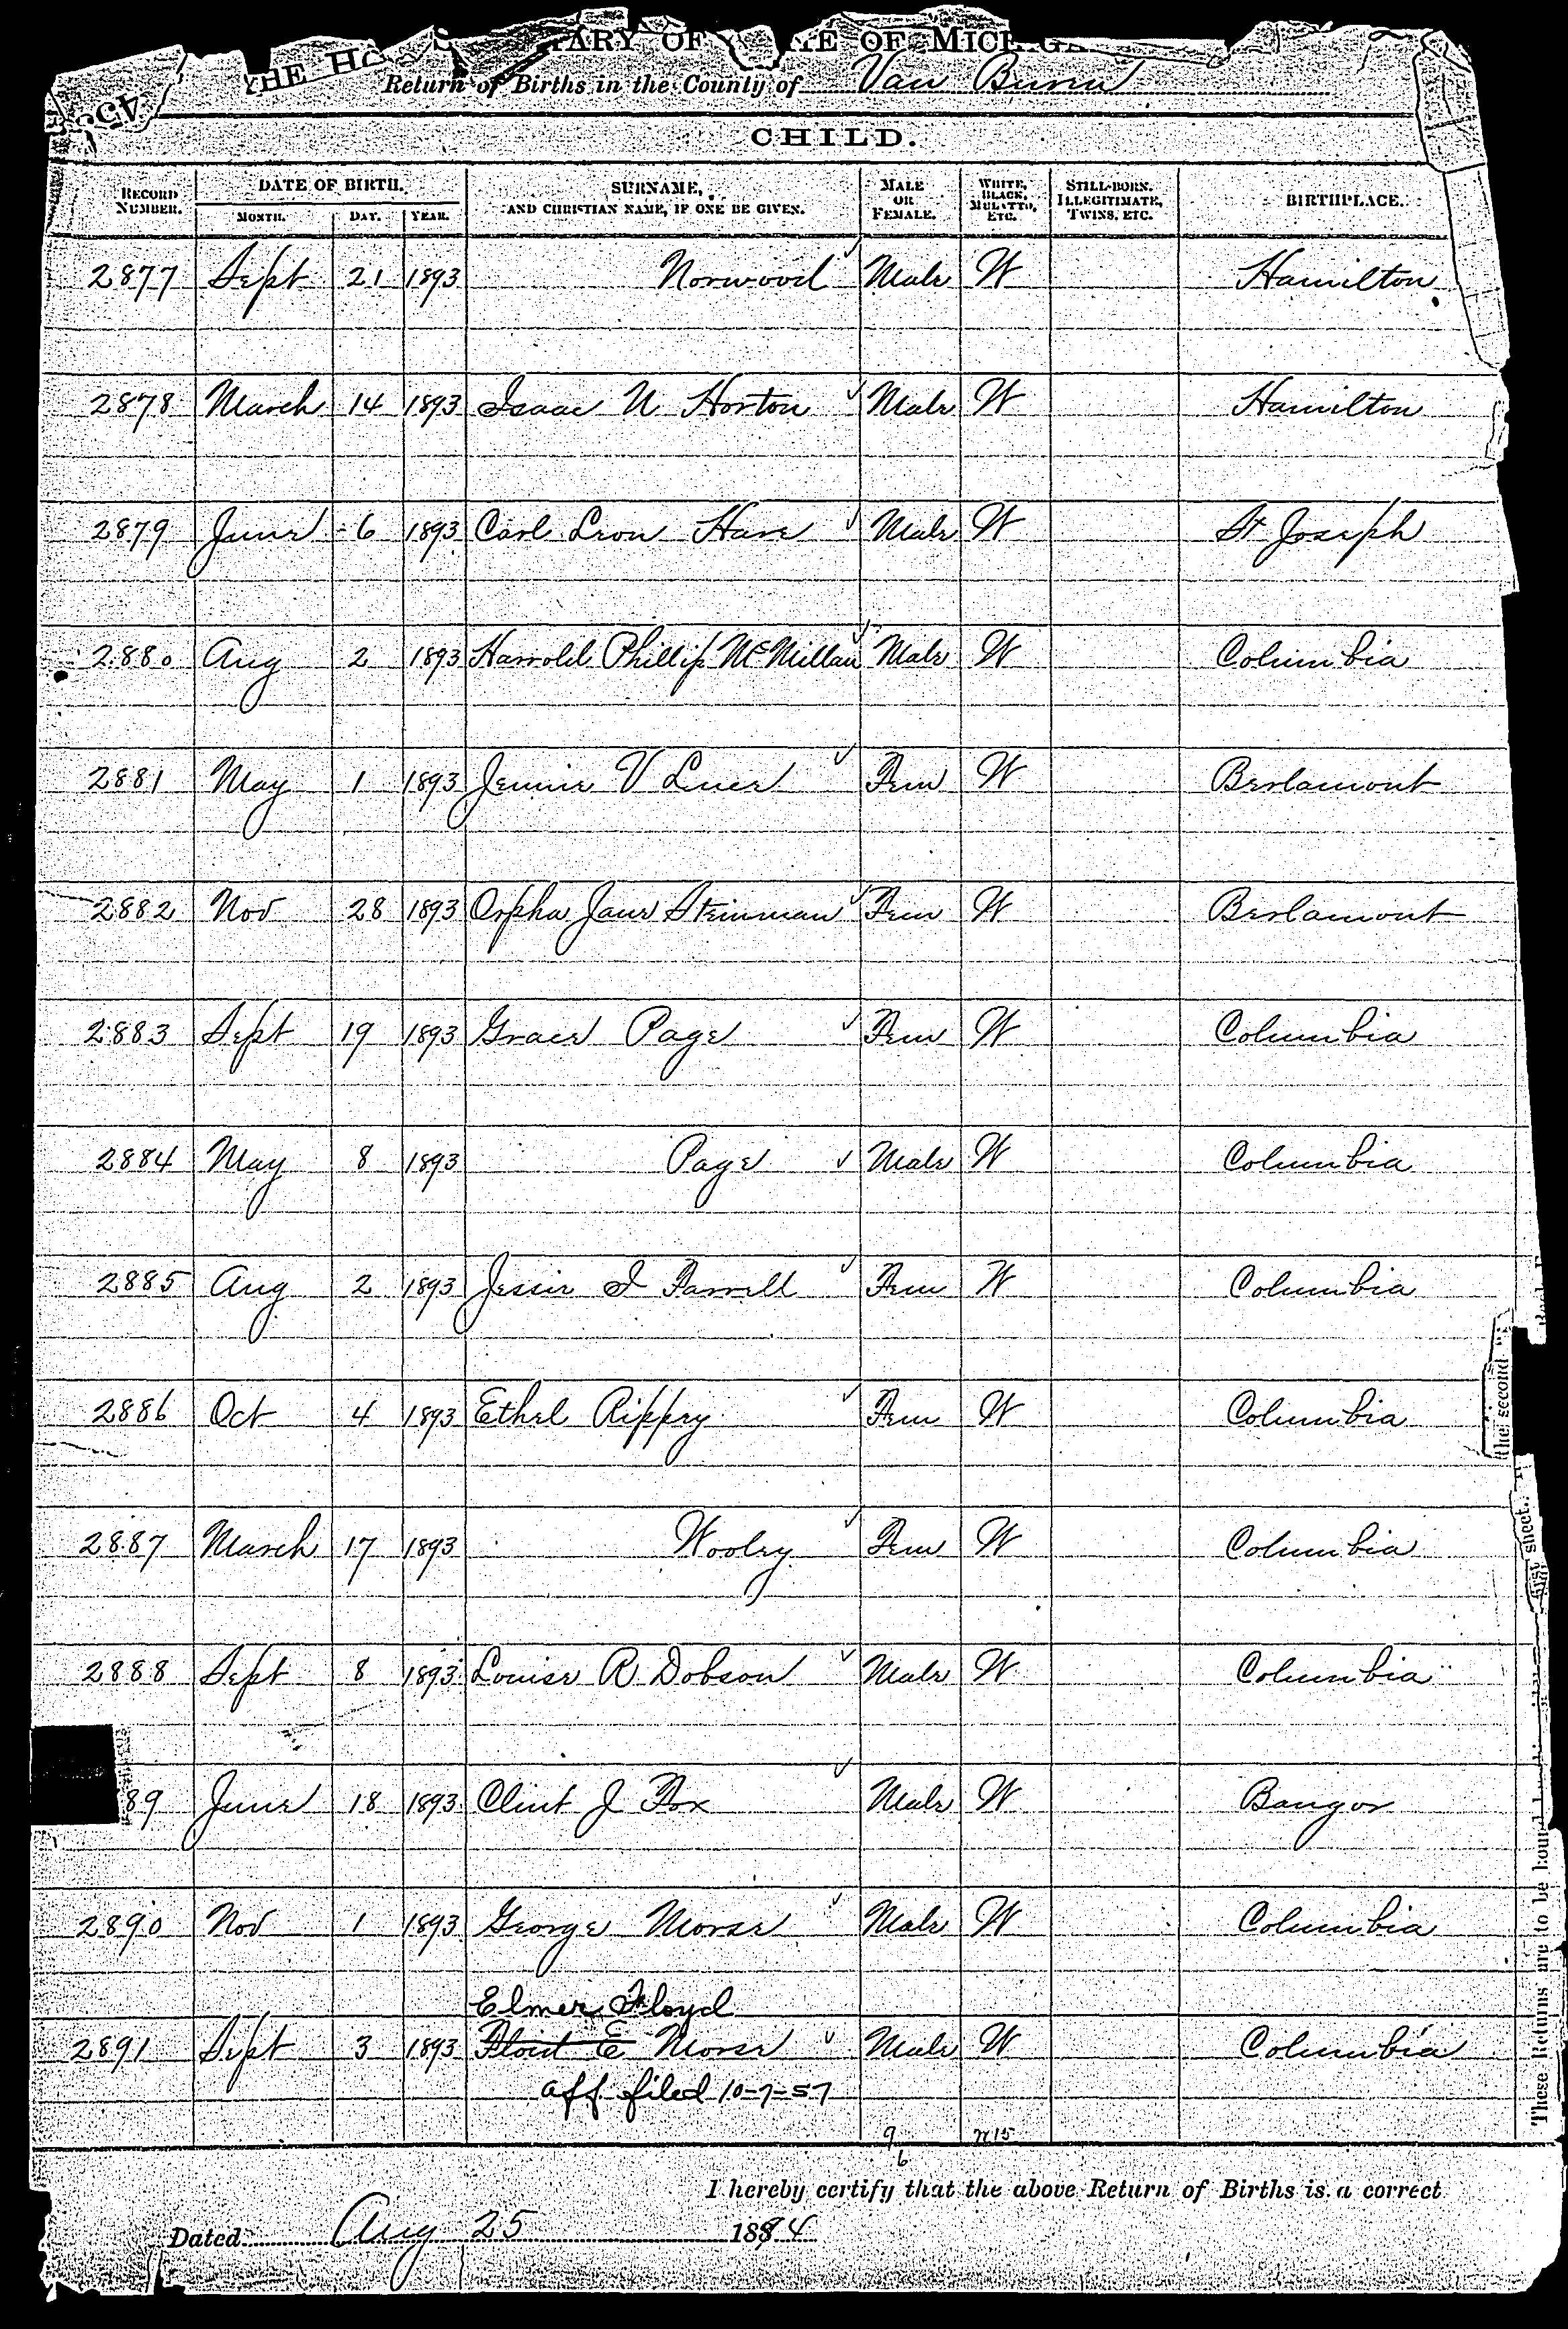 ARY OF TE OF MICHIGA
THE HO
Return of Births in the County of Van Buren
CHILD.
RECORD NUMBER. DATE OF BIRTH. MONTH. DAY. YEAR. SURNAME, AND CHRISTIAN NAME, IF ONE BE GIVEN. MALE OR FEMALE. WHITE, BLACK, MULATTO, ETC. STILL-BORN, ILLEGITIMATE, TWINS, ETC. BIRTHPLACE.
2877 Sept 21 1893 Norwood ✓ Male W Hamilton
2878 March 14 1893 Isaac N Horton ✓ Male W Hamilton
2879 June 6 1893 Carl Leon Hare ✓ Male W St Joseph
2880 Aug 2 1893 Harrold Phillip McMillan ✓ Male W Columbia
2881 May 1 1893 Jennie V Luce ✓ Fem W Berlamont
2882 Nov 28 1893 Orpha Jane Steinman ✓ Fem W Berlamont
2883 Sept 19 1893 Grace Page ✓ Fem W Columbia
2884 May 8 1893 Page ✓ Male W Columbia
2885 Aug 2 1893 Jessie I Farrell ✓ Fem W Columbia
2886 Oct 4 1893 Ethel Rippey ✓ Fem W Columbia
2887 March 17 1893 Wooley ✓ Fem W Columbia
2888 Sept 8 1893 Louise R Dobson ✓ Male W Columbia
89 June 18 1893 Clint J Fox ✓ Male W Bangor
2890 Nov 1 1893 George Morse ✓ Male W Columbia
Elmer Floyd
2891 Sept 3 1893 Floid E Morse ✓ Male W Columbia
aff. filed 10-7-57
9 W15
6
I hereby certify that the above Return of Births is a correct
Dated Aug 25 1894
the second
first sheet.
These Returns are to be bound